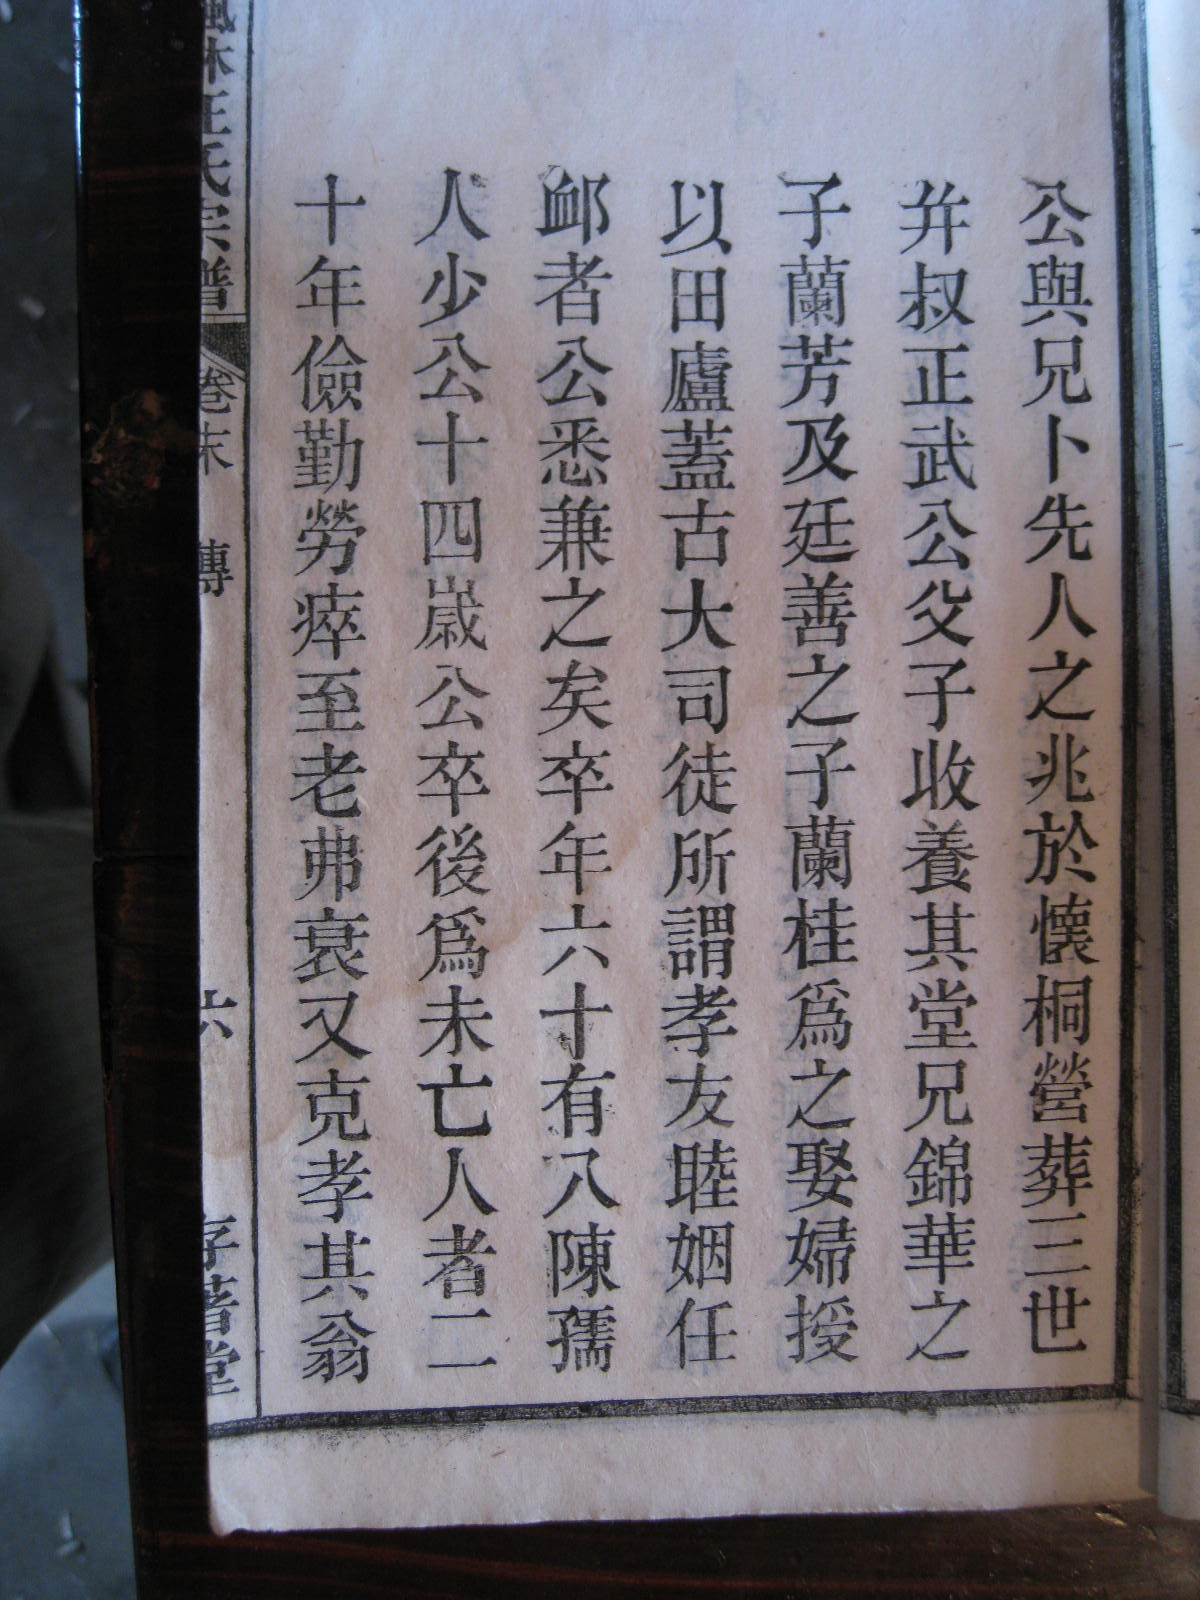 公與兄卜先人之兆於懷桐營葬三世
并叔正武公父子收養其堂兄錦華之
子蘭芳及廷善之子蘭桂爲之娶婦授
以田廬蓋古大司徒所謂孝友睦姻任
䘏者公悉兼之矣卒年六十有八陳孺
人少公十四歲公卒後爲未亡人者二
十年儉勤勞瘁至老弗衰又克孝其翁
汪氏宗譜
卷末
傳
六